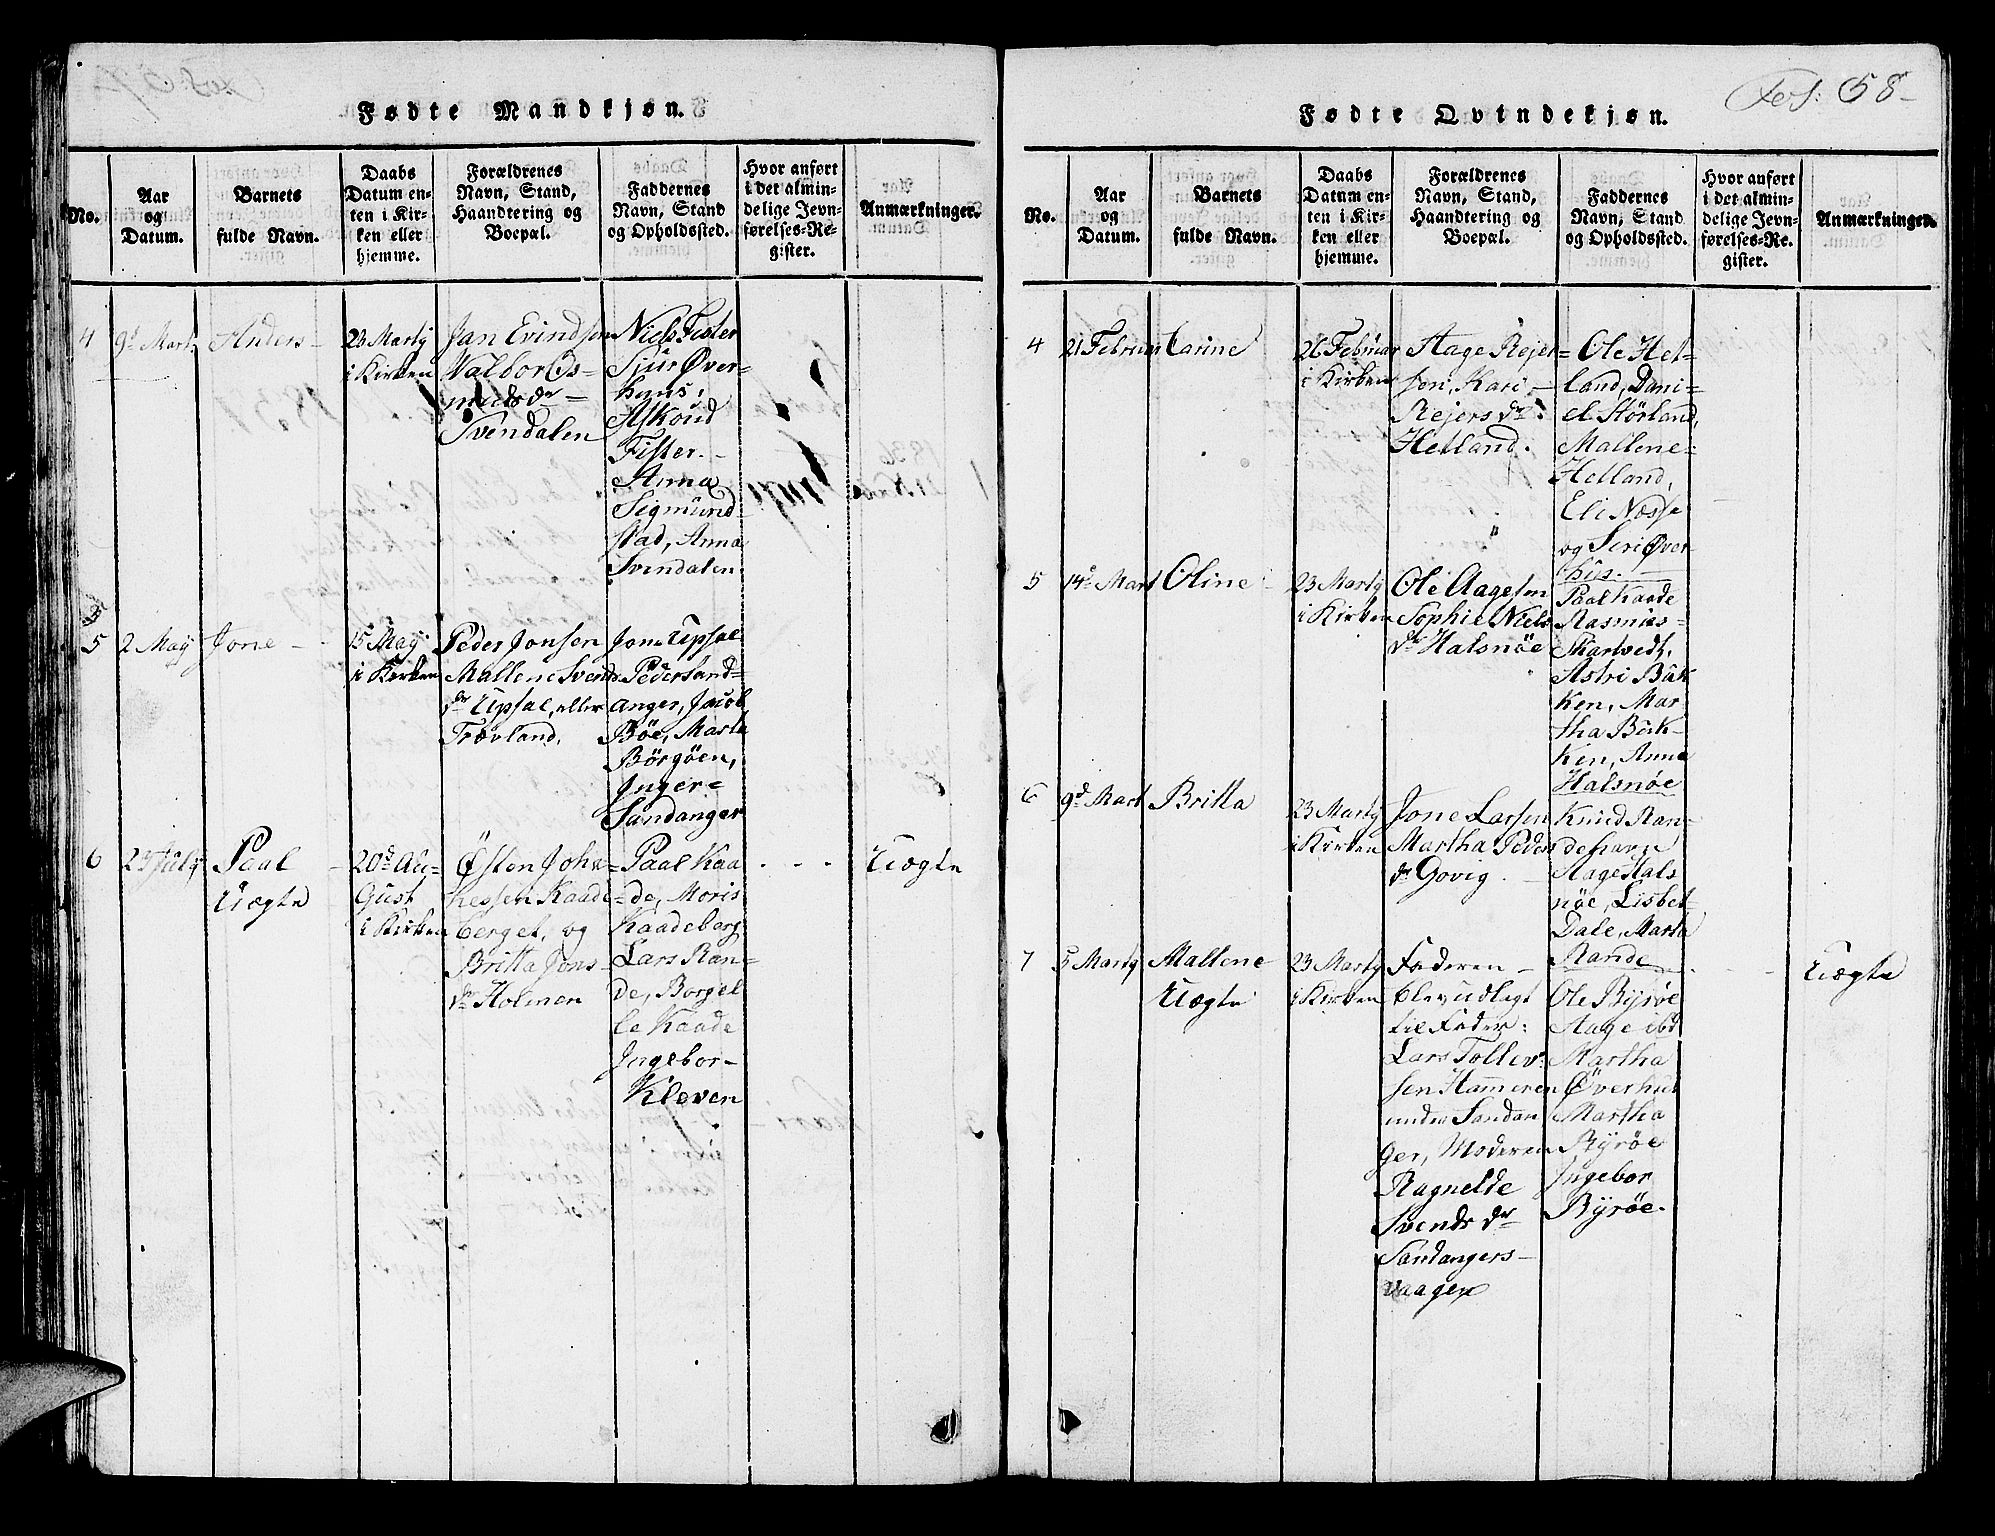 Fødte Mandkjøn.
No.
Aar
og
Datum.
Barnets
fulde Navn.
Daabs
Datum en-
ten i Kir-
ken eller
hjemme.
Forældrenes
Navn, Stand,
Haandtering og
Boepæl.
Faddernes
Navn, Stand
og Opholdssted.
Hvor anført
i det almin-
delige Jevn-
førelses-Re-
gister.
Anmærkninger.
4
9d Marts
Anders
23 Marty
i Kirken
Jan Evindsen
Valbor Os-
mundsdr
Svendalen
Niels Fister
Sjur Øver-
huus,
Askoud
Fister.
Anna
Sigmund
stad, Anna
Svendalen
5
2 May
Jone
15 May
i Kirken
Peder Jonsen
Mallene Svends
dr Upsal, eller
Trævland,
Jone Upsal
Peder Sand=
anger, Jacob
Bøe, Marta
Börgöen,
Inger=
Sandanger
6
29 July
Paal
Uægte
20de Au=
Gust
i Kirken
Östen Joha=
nessen Kaade=
berget, og
Britta Jons
dr Holmen
Paal Kaa
de, Moris
Kaadeberg
Lars Ran=
de, Borgel
le Kaade
Ingebor-
Kleven
Uægte
Fol: 58-
Fødte Qvindekjøn.
No.
Aar
og
Datum.
Barnets
fulde Navn.
Daabs
Datum en-
ten i Kir-
ken eller
hjemme.
Forældrenes
Navn, Stand,
Haandtering og
Boepæl.
Faddernes
Navn, Stand
og Opholdssted.
Hvor anført
i det almin-
delige Jevn-
førelses-Re-
gister.
Anmærkninger.
4
21 Februar
Carine
26 Februar
i Kirken
Aage Rejer=
son, Kari
Rejersdr
Helland.
Ole Hel=
land, Dani=
el Störland,
Mallene=
Helland,
Eli Næsse
og Seri Øver
hus.
5
14de Mart
Oline
23 Marty
i Kirken
Ole Aagesen
Sophie Niels
dr Halsnöe
Paal Kaade
Rasmus=
Thartvedt,
Astri Bak
ken, Mar
tha Bak-
ken, Anne
Halsnöe
6
9d Mart
Britta
23 Marty
i Kirken
Jone Larsen
Martha Peders
dr Govig.
Knud Ran=
dehavn
Aage Hals
nöe, Lisbet
Dale, Marta
Rande
7
5 Marty
Mallene
Uægte
23 Marty
i Kirken
Faderen
blev udlagt
til Fader:
Lars Tollev=
sen Hameren
under Sandan
ger, Moderen
Ragnelde
Svends dr
Sandangers-
vaagen
Ole Byröe
Aage ibd
Martha
Överhus
Martha
Byröe
Ingebor
Byröe.
Uægte